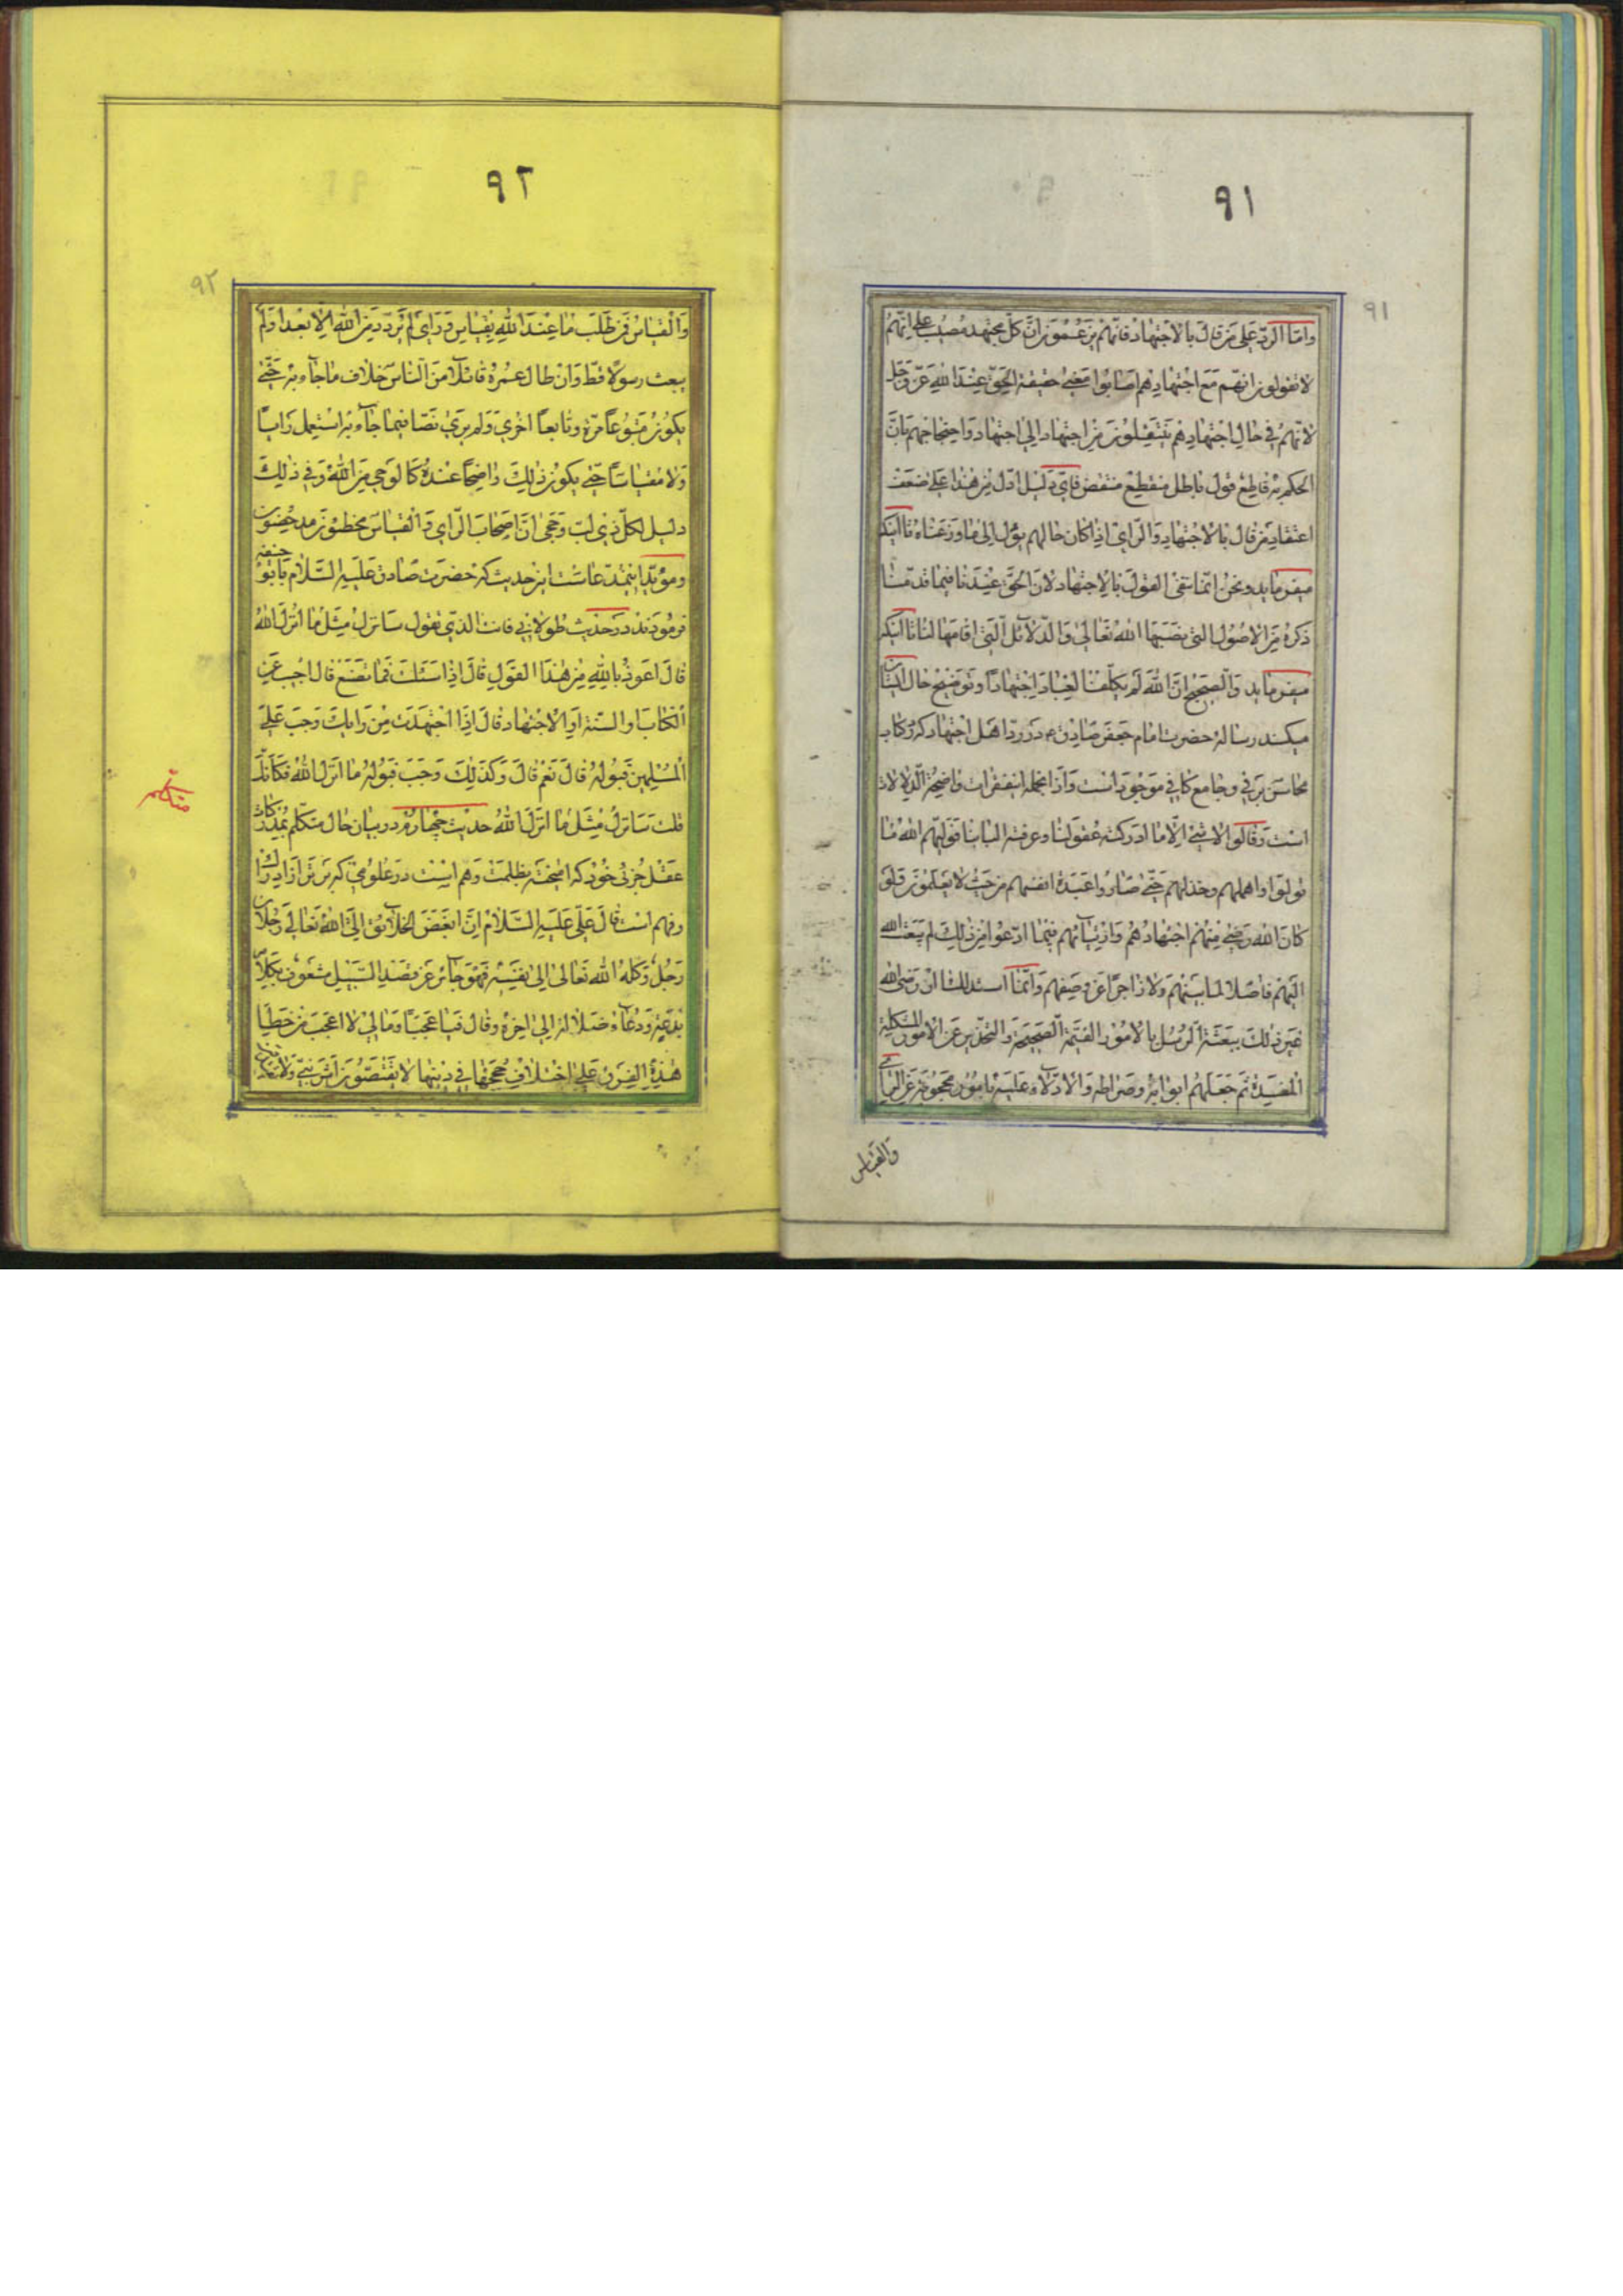 ٩١
٩١
واما الرد علی من قال بالاجتهاد فانهم یزعمون ان کل مجتهد مصیب علی انهم
لا یقولون انهم مع اجتهادهم اصابوا معنی حقیقة الحق عند الله عز وجل
لانهم فی حال اجتهادهم ینتقلون من اجتهاد الی اجتهاد واحتجاجهم بان
الحکم به قاطع قول باطل منقطع منتقض فای دلیل ادل من هذا علی ضعف
اعتقاد من قال بالاجتهاد والرای اذا کان حالهم یؤل الی ما وزعناه تا اینکه
میفرماید ونحن انما ننفی القول بالاجتهاد لان الحق عندنا فیما قدمنا
ذکره من الاصول التی نصبها الله تعالی والدلائل التی اقامها لنا تا اینکه
میفرماید والصحیح ان الله لم یکلف العباد اجتهادا وتوضیح حال ایشان
میکند رساله حضرت امام جعفر صادق ع در رد اهل اجتهاد که در کتاب
محاسن برقی وجامع کافی موجود است واذانجمله اینفقرات واضحة الدلالات
است وقالوا لا شئ الا ما ادرکته عقولنا وعرفته البابنا فولیهم الله ما
تولوا واهملهم وخذلهم حتی صاروا عبدة انفسهم من حیث لا یعلمون ولو
کان الله رضی منهم اجتهادهم وارتیائهم فیما ادعوا من ذلک لم یبعث الله
الیهم فاصلا لما بینهم ولا زاجرا عن وصفهم وانما استدللنا ان رضی الله
غیر ذلک ببعثة الرسل بالامور القیمة الصحیحة والتحذیر عن الامور المشکلة
المفسدة ثم جعلهم ابوابه وصراطه والادلاء علیه بامور محجوبة عن الرای
والقیاس
٩٢
٩٢
والقیاس فمن طلب ما عند الله بقیاس ورای لم یزدد من الله الا بعدا ولم
یبعث رسولا قط وان طال عمره قابلا من الناس خلاف ما جاء به حتی
یکون متبوعا مرة وتابعا اخری ولم یری ایضا فیما جاء به استعمل رایا
ولا مقیاسا حتی یکون ذلک واضحا عنده کالوحی من الله وفی ذلک
دلیل لکل ذی لب وحجی ان اصحاب الرای والقیاس مخطئون مدحضون
ومؤید اینمدعاست این حدیث که حضرت صادق علیه السلام بابو حنیفه
فرمودند در حدیث طولانی فانت الذی تقول سانزل مثل ما انزل الله
قال اعوذ بالله من هذا القول قال اذا سئلت فما تصنع قال اجیب عن
الکتاب او السنة او الاجتهاد قال اذا اجتهدت من رایک وجب علی
المسلمین قبوله قال نعم قال وکذلک وجب قبول ما انزل الله فکانک
قلت سانزل مثل ما انزل الله حدیث چهارم در بیان حال متکلم بمدرکات
عقل جزئی خود که امیخته بظلمت وهم است در علومی که برتر از ادراک
وفهم است قال علی علیه السلام ان ابغض الخلائق الی الله تعالی رجلان
رجل وکله الله تعالی الی نفسه فهو جائر عن قصد السبیل مشعوف بکلام
بدعة ودعاء ضلالة الی اخره وقال فیا عجبا ومالی لا اعجب من خطا
هذه الفرق علی اختلاف حججها فی دینها لا یقتصون اثر نبی ولا